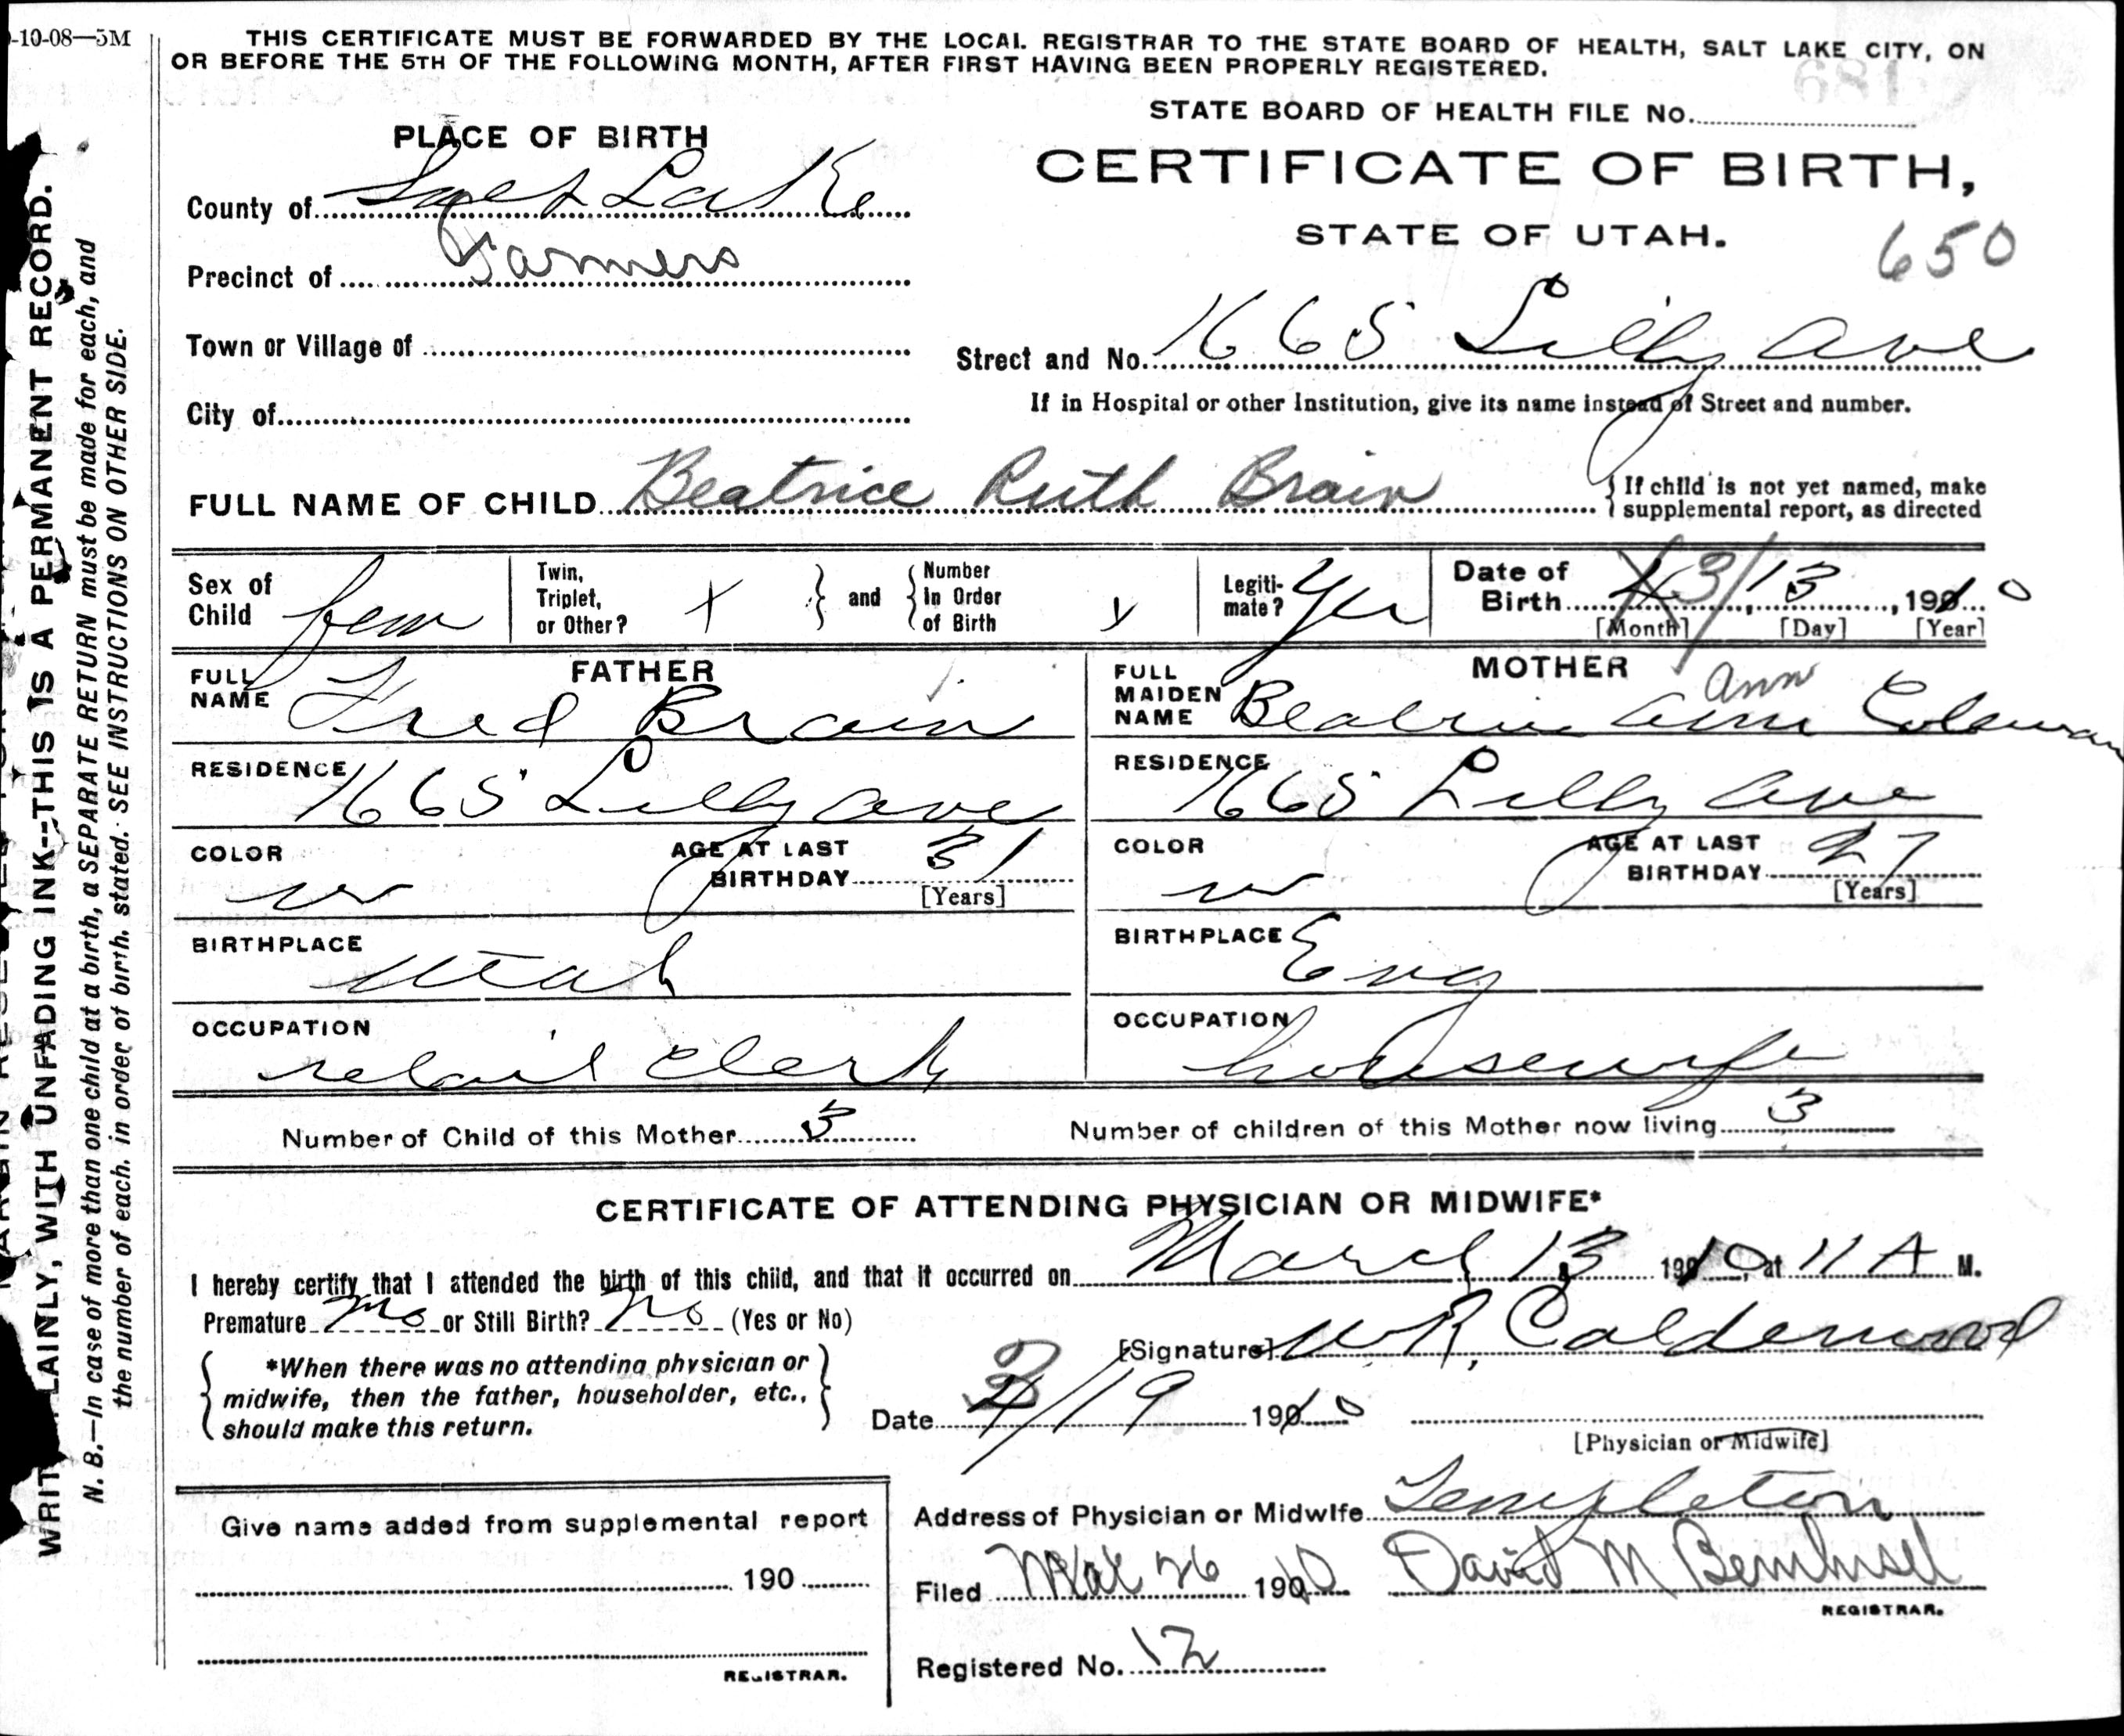 -10-08—5M
THIS CERTIFICATE MUST BE FORWARDED BY THE LOCAL REGISTRAR TO THE STATE BOARD OF HEALTH, SALT LAKE CITY, ON
OR BEFORE THE 5TH OF THE FOLLOWING MONTH, AFTER FIRST HAVING BEEN PROPERLY REGISTERED.
681
STATE BOARD OF HEALTH FILE No.
PLACE OF BIRTH
CERTIFICATE OF BIRTH,
STATE OF UTAH.
650
County of Salt Lake
Precinct of Farmers
Town or Village of
Street and No. 1665 Lilly Ave
City of
If in Hospital or other Institution, give its name instead of Street and number.
FULL NAME OF CHILD Beatrice Ruth Brain
If child is not yet named, make
supplemental report, as directed
Sex of Child fem Twin, Triplet, or Other? x and Number In Order of Birth x Legiti-mate? Yes Date of Birth 3/13, 1910
[Month] [Day] [Year]
FATHER
MOTHER
FULL NAME Fred Brain
FULL MAIDEN NAME Beatrice Ann Ann Coleman
RESIDENCE 1665 Lilly Ave
RESIDENCE 1665 Lilly Ave
COLOR w AGE AT LAST BIRTHDAY 31 [Years]
COLOR w AGE AT LAST BIRTHDAY 27 [Years]
BIRTHPLACE Utah
BIRTHPLACE Eng
OCCUPATION retail clerk
OCCUPATION housewife
Number of Child of this Mother 3
Number of children of this Mother now living 3
CERTIFICATE OF ATTENDING PHYSICIAN OR MIDWIFE*
I hereby certify that I attended the birth of this child, and that it occurred on March 13, 1910, at 11 A M.
Premature no or Still Birth? no (Yes or No)
[Signature] W.R. Calderwood
*When there was no attending physician or
midwife, then the father, householder, etc.,
should make this return.
Date 3/19 1910
[Physician or Midwife]
Give name added from supplemental report
190
REGISTRAR.
Address of Physician or Midwife Templeton
Filed Mar 26 1910 David M Bernhisel
REGISTRAR.
Registered No. 12
WRITE PLAINLY, WITH UNFADING INK--THIS IS A PERMANENT RECORD.
N. B.—In case of more than one child at a birth, a SEPARATE RETURN must be made for each, and
the number of each, in order of birth, stated. SEE INSTRUCTIONS ON OTHER SIDE.